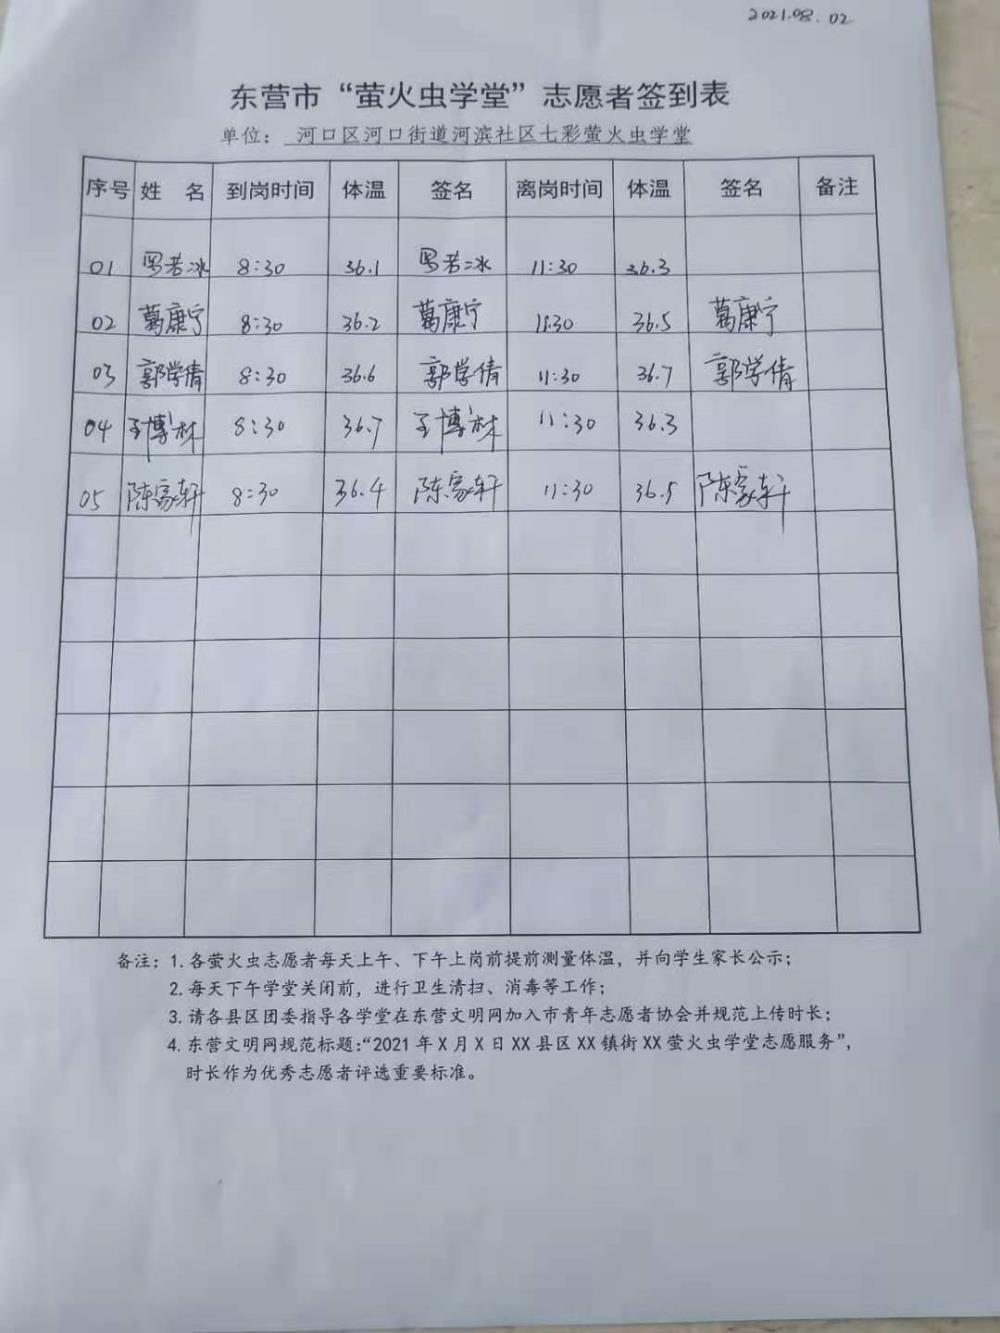 2021.08.02
东营市“萤火虫学堂”志愿者签到表
单位： 河口区河口街道河滨社区七彩萤火虫学堂
序号 姓 名 到岗时间 体温 签名 离岗时间 体温 签名 备注
01 若冰 8:30 36.1 若冰 11:30 36.3
02 葛康宁 8:30 36.2 葛康宁 11:30 36.5 葛康宁
03 郭学倩 8:30 36.6 郭学倩 11:30 36.7 郭学倩
04 王博林 8:30 36.7 王博林 11:30 36.3
05 陈家轩 8:30 36.4 陈家轩 11:30 36.5 陈家轩
备注：1. 各萤火虫志愿者每天上午、下午上岗前提前测量体温，并向学生家长公示；
2. 每天下午学堂关闭前，进行卫生清扫、消毒等工作；
3. 请各县区团委指导各学堂在东营文明网加入市青年志愿者协会并规范上传时长；
4. 东营文明网规范标题：“2021 年 X 月 X 日 XX 县区 XX 镇街 XX 萤火虫学堂志愿服务”，
时长作为优秀志愿者评选重要标准。